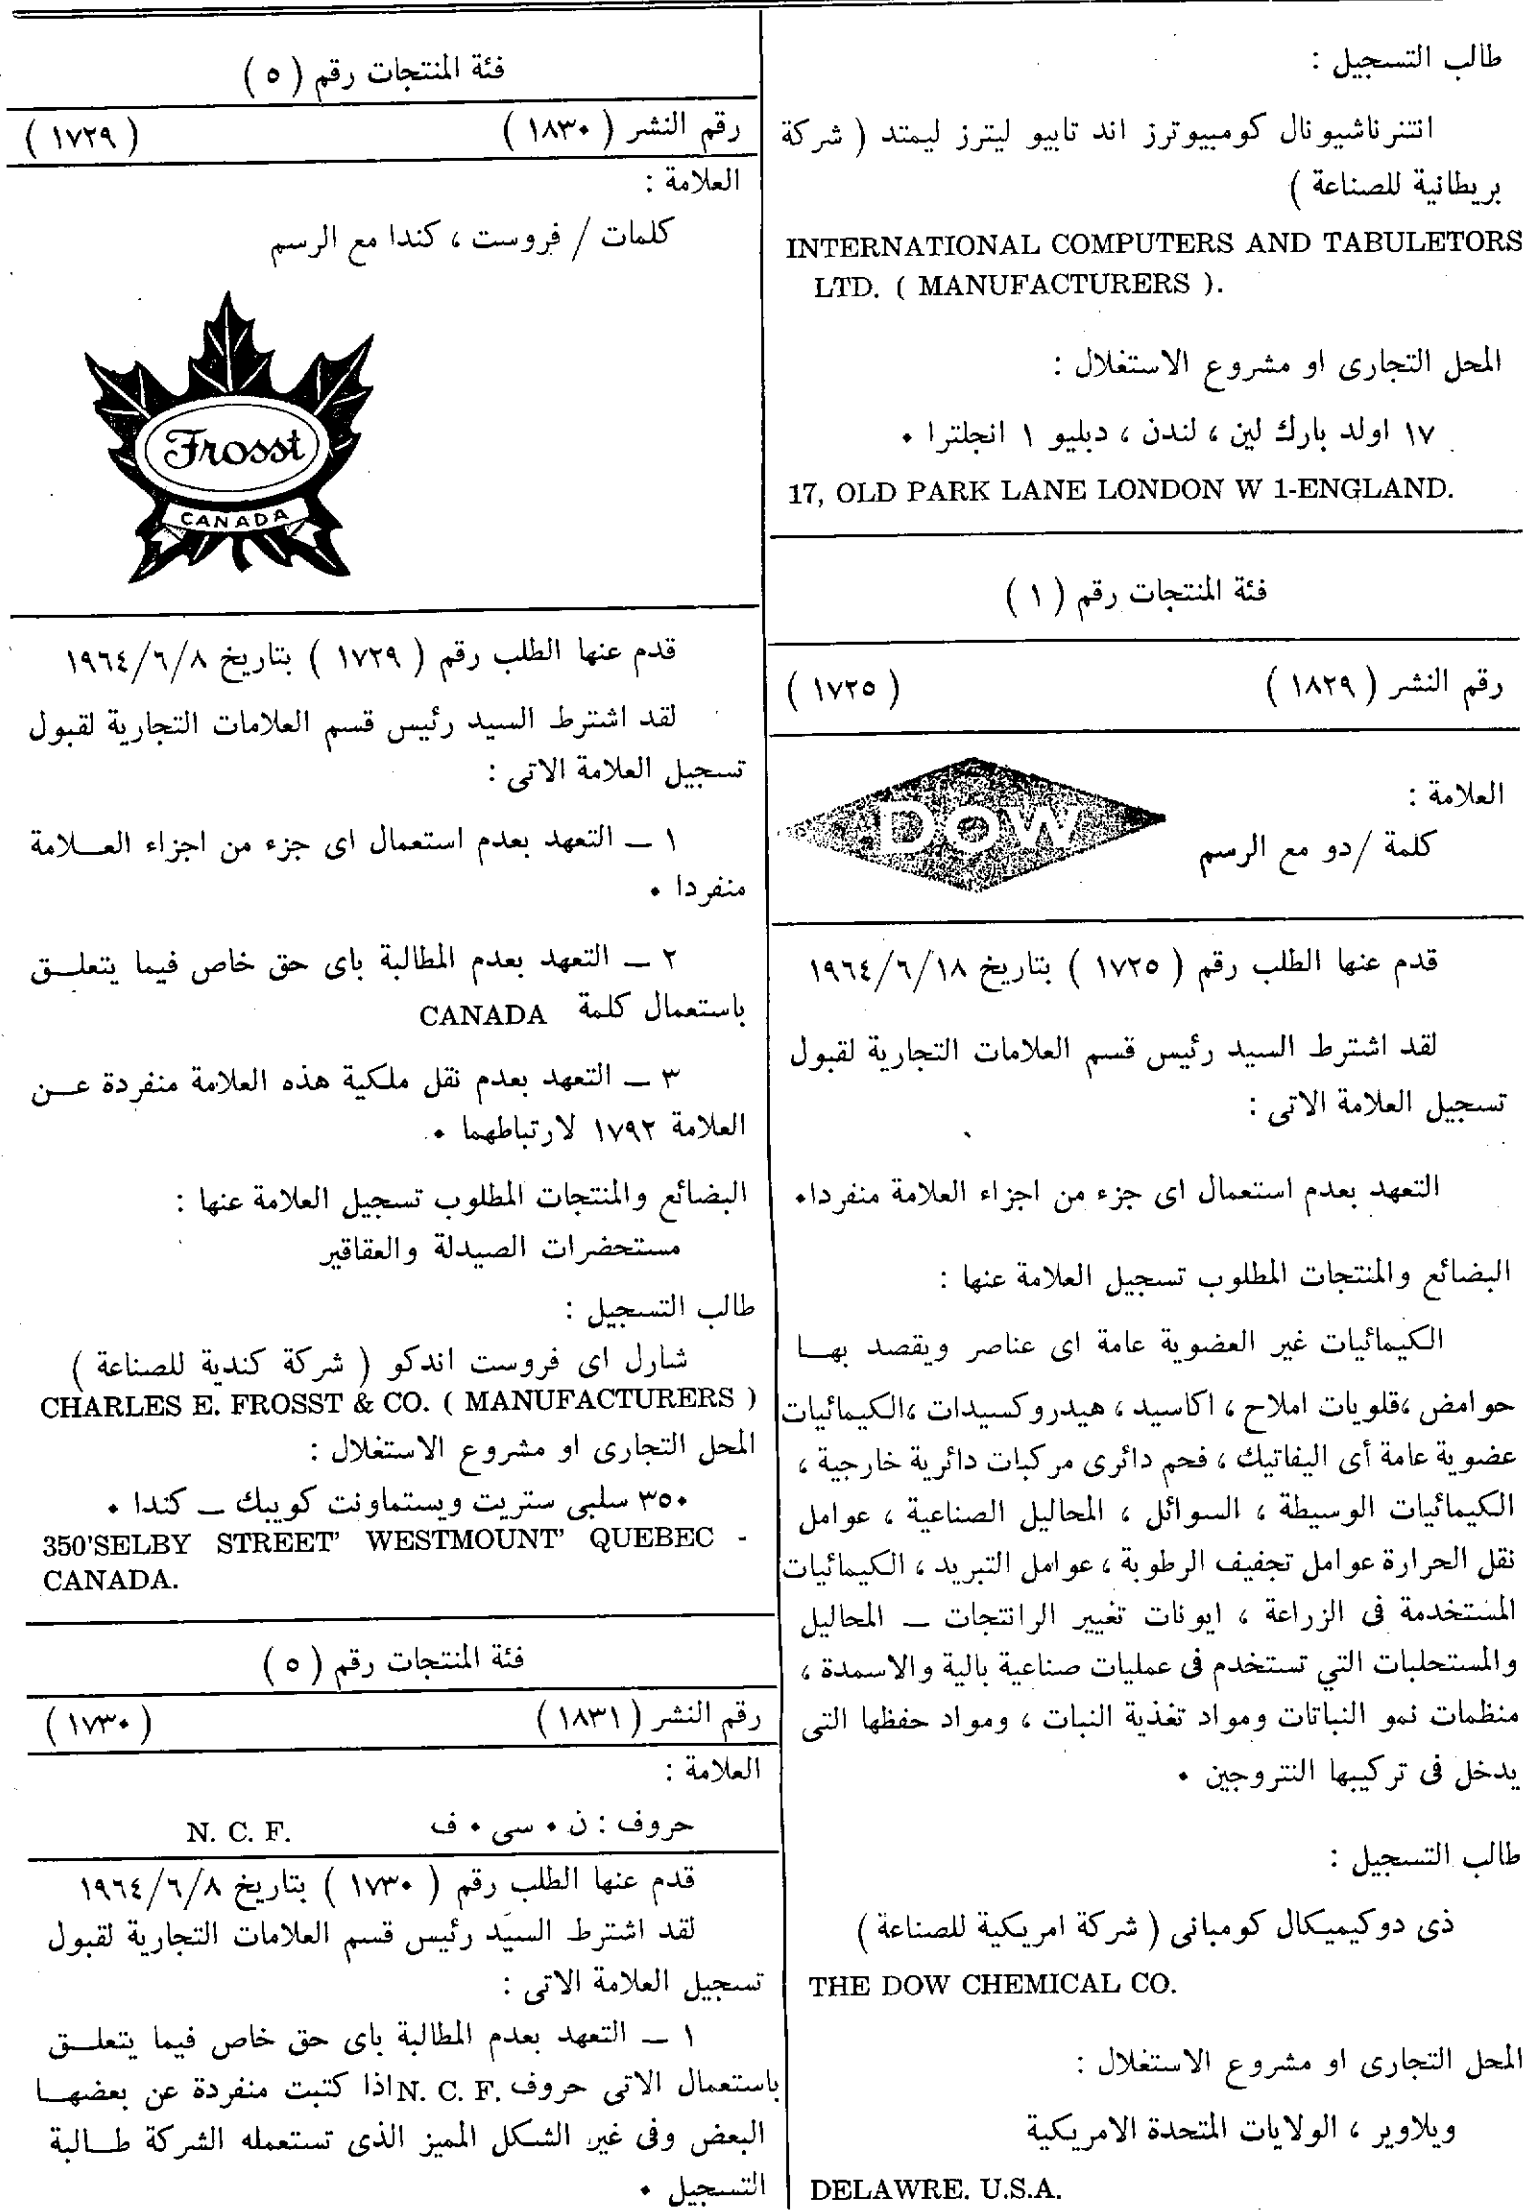 طالب التسجيل :
انتنرناشيونال كومبيوترز اند تابيو ليترز ليمتد ( شركة
بريطانية للصناعة )
INTERNATIONAL COMPUTERS AND TABULETORS
LTD. ( MANUFACTURERS ).
المحل التجارى او مشروع الاستغلال :
١٧ اولد بارك لين ، لندن ، دبليو ١ انجلترا .
17, OLD PARK LANE LONDON W 1-ENGLAND.
فئة المنتجات رقم ( ١ )
رقم النشر ( ١٨٢٩ ) ( ١٧٢٥ )
العلامة :
كلمة /دو مع الرسم
DOW
قدم عنها الطلب رقم ( ١٧٢٥ ) بتاريخ ١٩٦٤/٦/١٨
لقد اشترط السيد رئيس قسم العلامات التجارية لقبول
تسجيل العلامة الاتى :
التعهد بعدم استعمال اى جزء من اجزاء العلامة منفردا.
البضائع والمنتجات المطلوب تسجيل العلامة عنها :
الكيمائيات غير العضوية عامة اى عناصر ويقصد بها
حوامض ،قلويات املاح ، اكاسيد ، هيدروكسيدات ،الكيمائيات
عضوية عامة أى اليفاتيك ، فحم دائرى مركبات دائرية خارجية ،
الكيمائيات الوسيطة ، السوائل ، المحاليل الصناعية ، عوامل
نقل الحرارة عوامل تجفيف الرطوبة ، عوامل التبريد ، الكيمائيات
المستخدمة فى الزراعة ، ايونات تغيير الرانتجات ــ المحاليل
والمستحلبات التي تستخدم فى عمليات صناعية بالية والاسمدة ،
منظمات نمو النباتات ومواد تغذية النبات ، ومواد حفظها التى
يدخل فى تركيبها النتروجين .
طالب التسجيل :
ذى دوكيميكال كومبانى ( شركة امريكية للصناعة )
THE DOW CHEMICAL CO.
المحل التجارى او مشروع الاستغلال :
ويلاوير ، الولايات المتحدة الامريكية
DELAWRE. U.S.A.
فئة المنتجات رقم ( ٥ )
رقم النشر ( ١٨٣٠ ) ( ١٧٢٩ )
العلامة :
كلمات / فروست ، كندا مع الرسم
Frosst
CANADA
قدم عنها الطلب رقم ( ١٧٢٩ ) بتاريخ ١٩٦٤/٦/٨
لقد اشترط السيد رئيس قسم العلامات التجارية لقبول
تسجيل العلامة الاتى :
١ ــ التعهد بعدم استعمال اى جزء من اجزاء العـلامة
منفردا .
٢ ــ التعهد بعدم المطالبة باى حق خاص فيما يتعلـق
باستعمال كلمة CANADA
٣ ــ التعهد بعدم نقل ملكية هذه العلامة منفردة عـن
العلامة ١٧٩٢ لارتباطهما .
البضائع والمنتجات المطلوب تسجيل العلامة عنها :
مستحضرات الصيدلة والعقاقير
طالب التسجيل :
شارل اى فروست اندكو ( شركة كندية للصناعة )
CHARLES E. FROSST & CO. ( MANUFACTURERS )
المحل التجارى او مشروع الاستغلال :
٣٥٠ سلبى ستريت ويستماونت كويبك ــ كندا .
350'SELBY STREET' WESTMOUNT' QUEBEC -
CANADA.
فئة المنتجات رقم ( ٥ )
رقم النشر ( ١٨٣١ ) ( ١٧٣٠ )
العلامة :
حروف : ن . سى . ف N. C. F.
قدم عنها الطلب رقم ( ١٧٣٠ ) بتاريخ ١٩٦٤/٦/٨
لقد اشترط السيد رئيس قسم العلامات التجارية لقبول
تسجيل العلامة الاتى :
١ ــ التعهد بعدم المطالبة باى حق خاص فيما يتعلـق
باستعمال الاتى حروف N. C. F. اذا كتبت منفردة عن بعضهـا
البعض وفى غير الشكل المميز الذى تستعمله الشركة طـالبة
التسجيل .